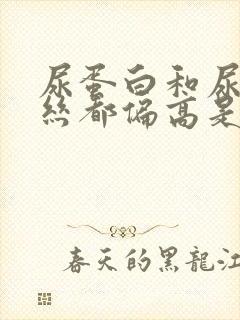 尿蛋白和尿
丝都偏高是
春天的黑龍江